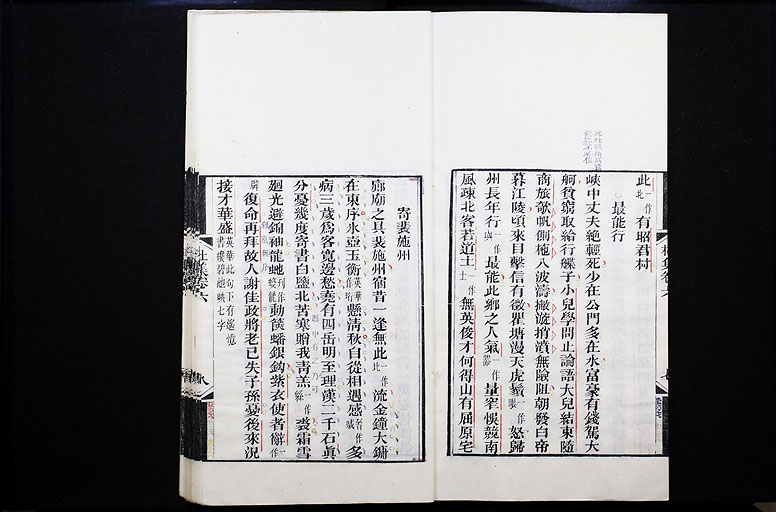 此一作北有昭君村
最能行
峽中丈夫絕輕死少在公門多在水富豪有錢駕大
舸貧窮取給行艓子小兒學問止論語大兒結束隨
商旅欹帆側柁入波濤撇漩捎濆無險阻朝發白帝
暮江陵頃來目擊信有徵瞿塘漫天虎鬚一作眼怒歸
州長年行一作與最能此鄉之人氣一作器量窄悞競南
風疎北客若道土一作士無英俊才何得山有屈原宅
寄裴施州
廊廟之具裴施州宿昔一逢無此一作比流金鐘大鏞
在東序氷壺玉衡英華作珩懸清秋自從相遇感晉作減多
病三歲爲客寬邊愁堯有四岳明至理漢二千石眞
分憂幾度寄書白鹽北苦寒贈我靑羔一作絲裘霜雪
廻光避錦袖龍虵刋作蛟龍動篋蟠銀鉤紫衣使者辭一作
辟復命再拜故人謝佳政將老已失子孫憂後來況
接才華盛英華此句下有遙憶書樓碧池映七字